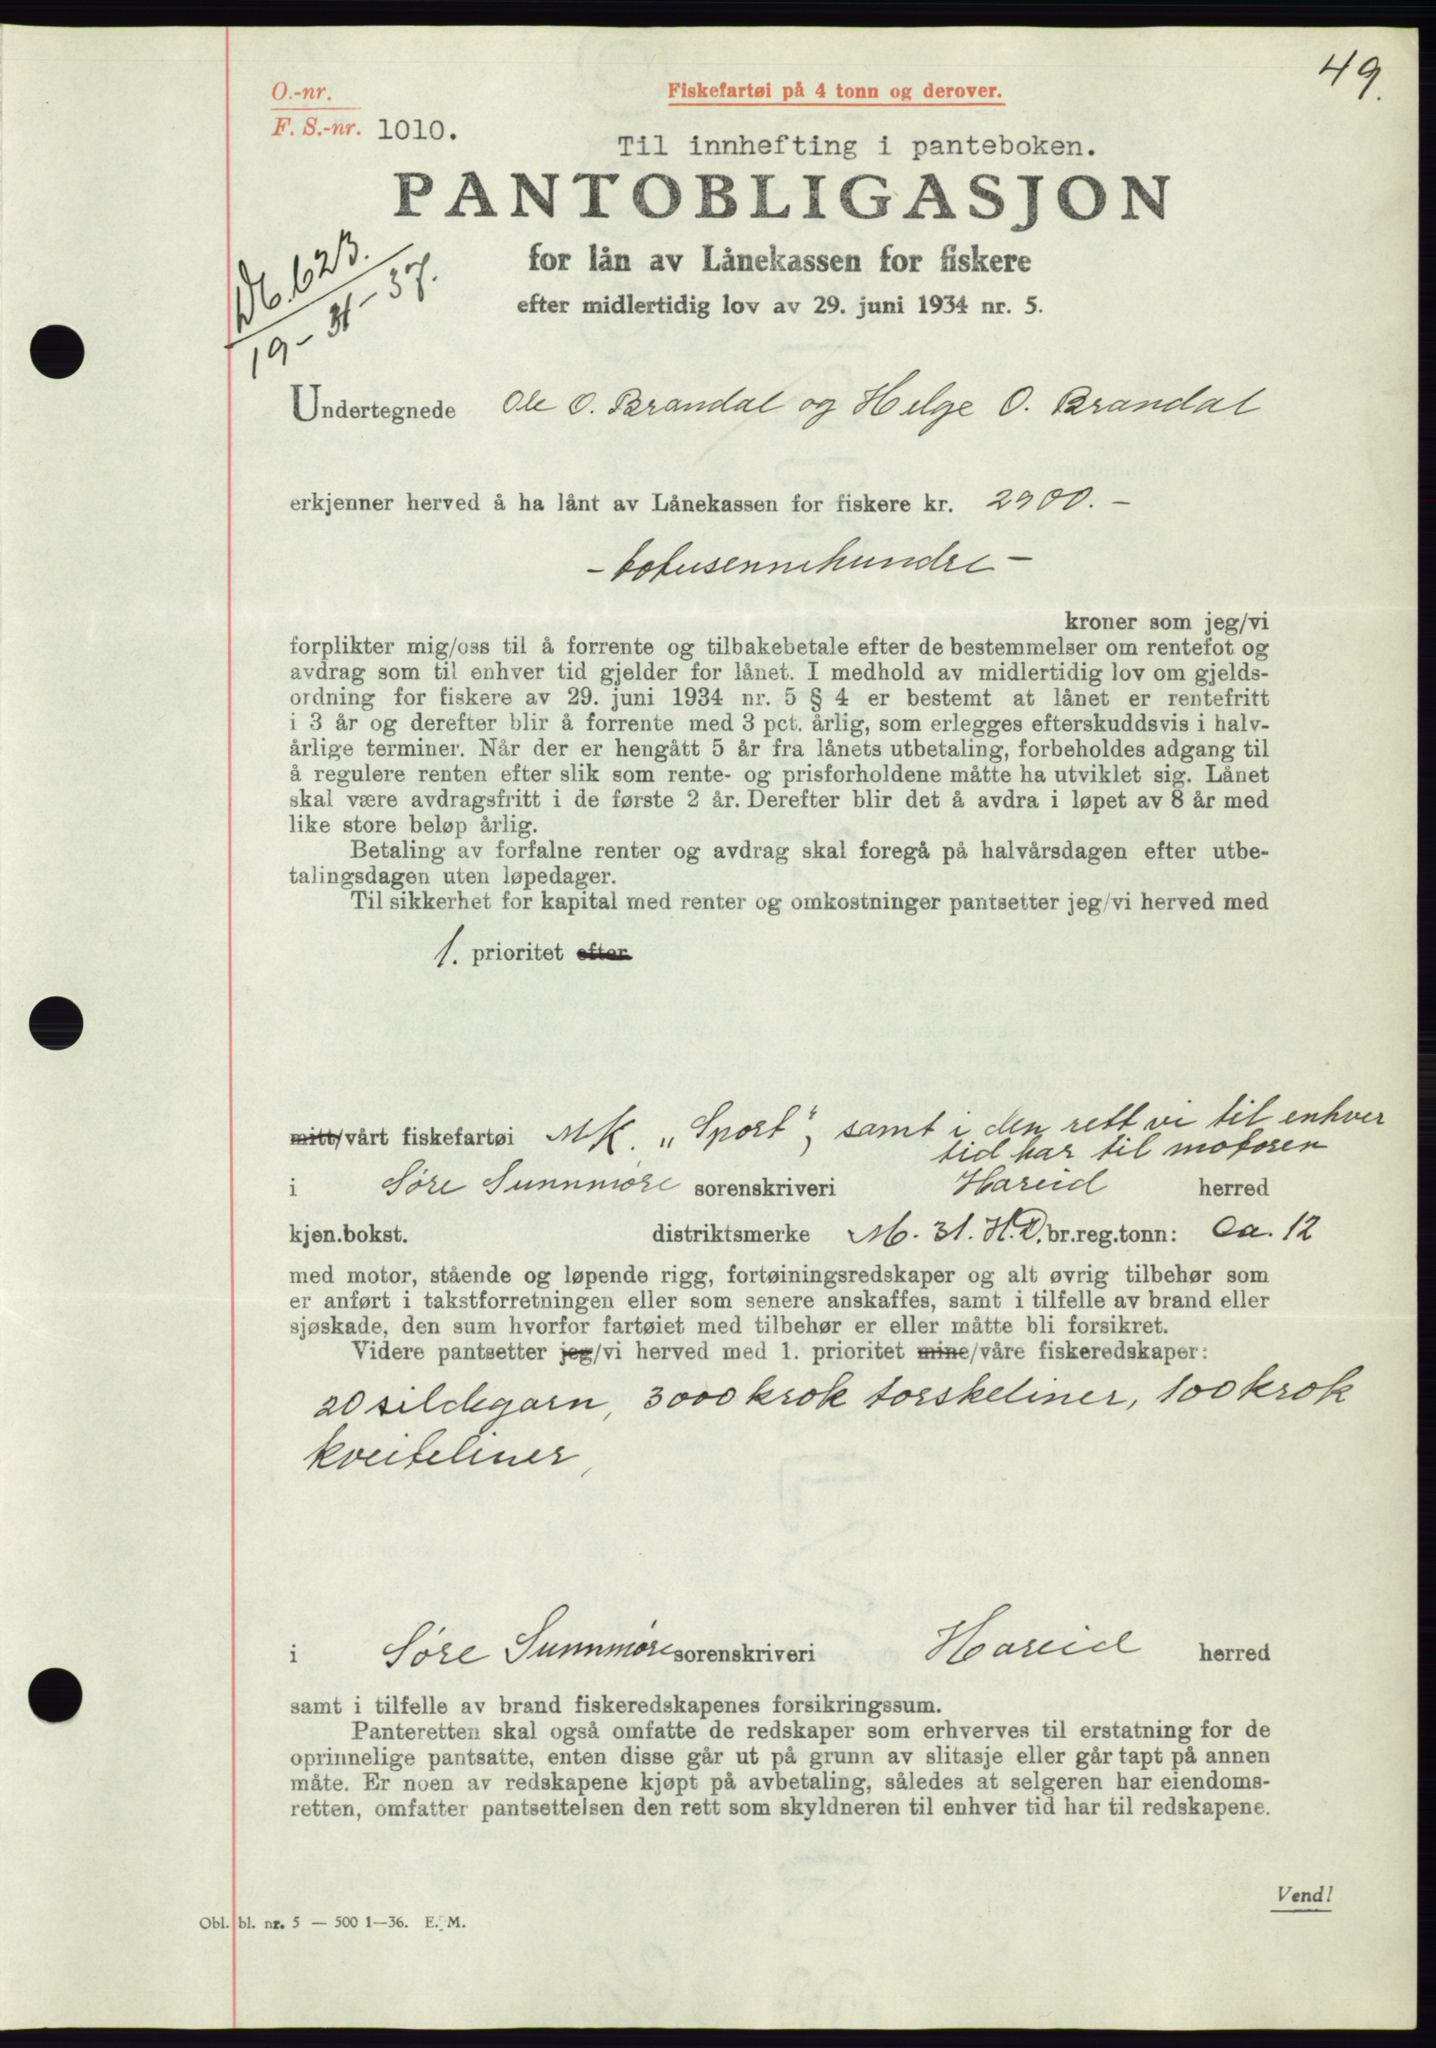 49.
O.-nr.
Fiskefartøi på 4 tonn og derover.
F. S.-nr. 1010.
Til innhefting i panteboken.
PANTOBLIGASJON
for lån av Lånekassen for fiskere
efter midlertidig lov av 29. juni 1934 nr. 5.
623.
19 - - 37.
Undertegnede Ole O. Brandal og Helge O. Brandal
erkjenner herved å ha lånt av Lånekassen for fiskere kr. 2900.-
- totusennihundre -
kroner som jeg/vi
forplikter mig/oss til å forrente og tilbakebetale efter de bestemmelser om rentefot og
avdrag som til enhver tid gjelder for lånet. I medhold av midlertidig lov om gjelds-
ordning for fiskere av 29. juni 1934 nr. 5 § 4 er bestemt at lånet er rentefritt
i 3 år og derefter blir å forrente med 3 pct. årlig, som erlegges efterskuddsvis i halv-
årlige terminer. Når der er hengått 5 år fra lånets utbetaling, forbeholdes adgang til
å regulere renten efter slik som rente- og prisforholdene måtte ha utviklet sig. Lånet
skal være avdragsfritt i de første 2 år. Derefter blir det å avdra i løpet av 8 år med
like store beløp årlig.
Betaling av forfalne renter og avdrag skal foregå på halvårsdagen efter utbe-
talingsdagen uten løpedager.
Til sikkerhet for kapital med renter og omkostninger pantsetter jeg/vi herved med
1. prioritet efter
mitt/vårt fiskefartøi MK. „Sport", samt i den rett vi til enhver
tid har til motoren
i Søre Sunnmøre sorenskriveri Hareid herred
kjen.bokst. distriktsmerke M. 31. H.D. br.reg.tonn: Ca. 12
med motor, stående og løpende rigg, fortøiningsredskaper og alt øvrig tilbehør som
er anført i takstforretningen eller som senere anskaffes, samt i tilfelle av brand eller
sjøskade, den sum hvorfor fartøiet med tilbehør er eller måtte bli forsikret.
Videre pantsetter jeg/vi herved med 1. prioritet mine/våre fiskeredskaper:
20 sildegarn, 3000 krok torskeliner, 100 krok
kveiteliner,
i Søre Sunnmøre sorenskriveri Hareid herred
samt i tilfelle av brand fiskeredskapenes forsikringssum.
Panteretten skal også omfatte de redskaper som erhverves til erstatning for de
oprinnelige pantsatte, enten disse går ut på grunn av slitasje eller går tapt på annen
måte. Er noen av redskapene kjøpt på avbetaling, således at selgeren har eiendoms-
retten, omfatter pantsettelsen den rett som skyldneren til enhver tid har til redskapene.
Vend!
Obl. bl. nr. 5 — 500 1—36. E. M.